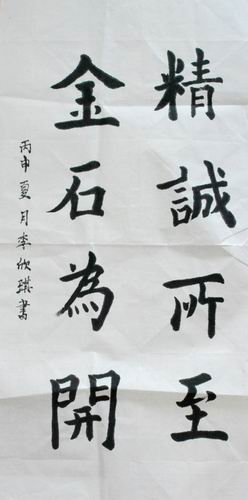 精誠所至
金石為開
丙申夏月李欣琪書